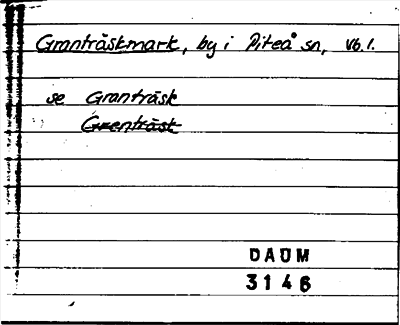 Granträskmark, by i Piteå sn, Vb.l.
se Granträsk
Grenträsk
DAUM
3146